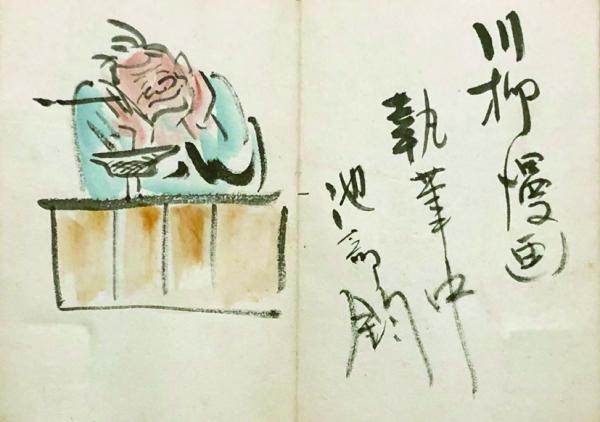 川柳漫画
執筆中
池部鈞